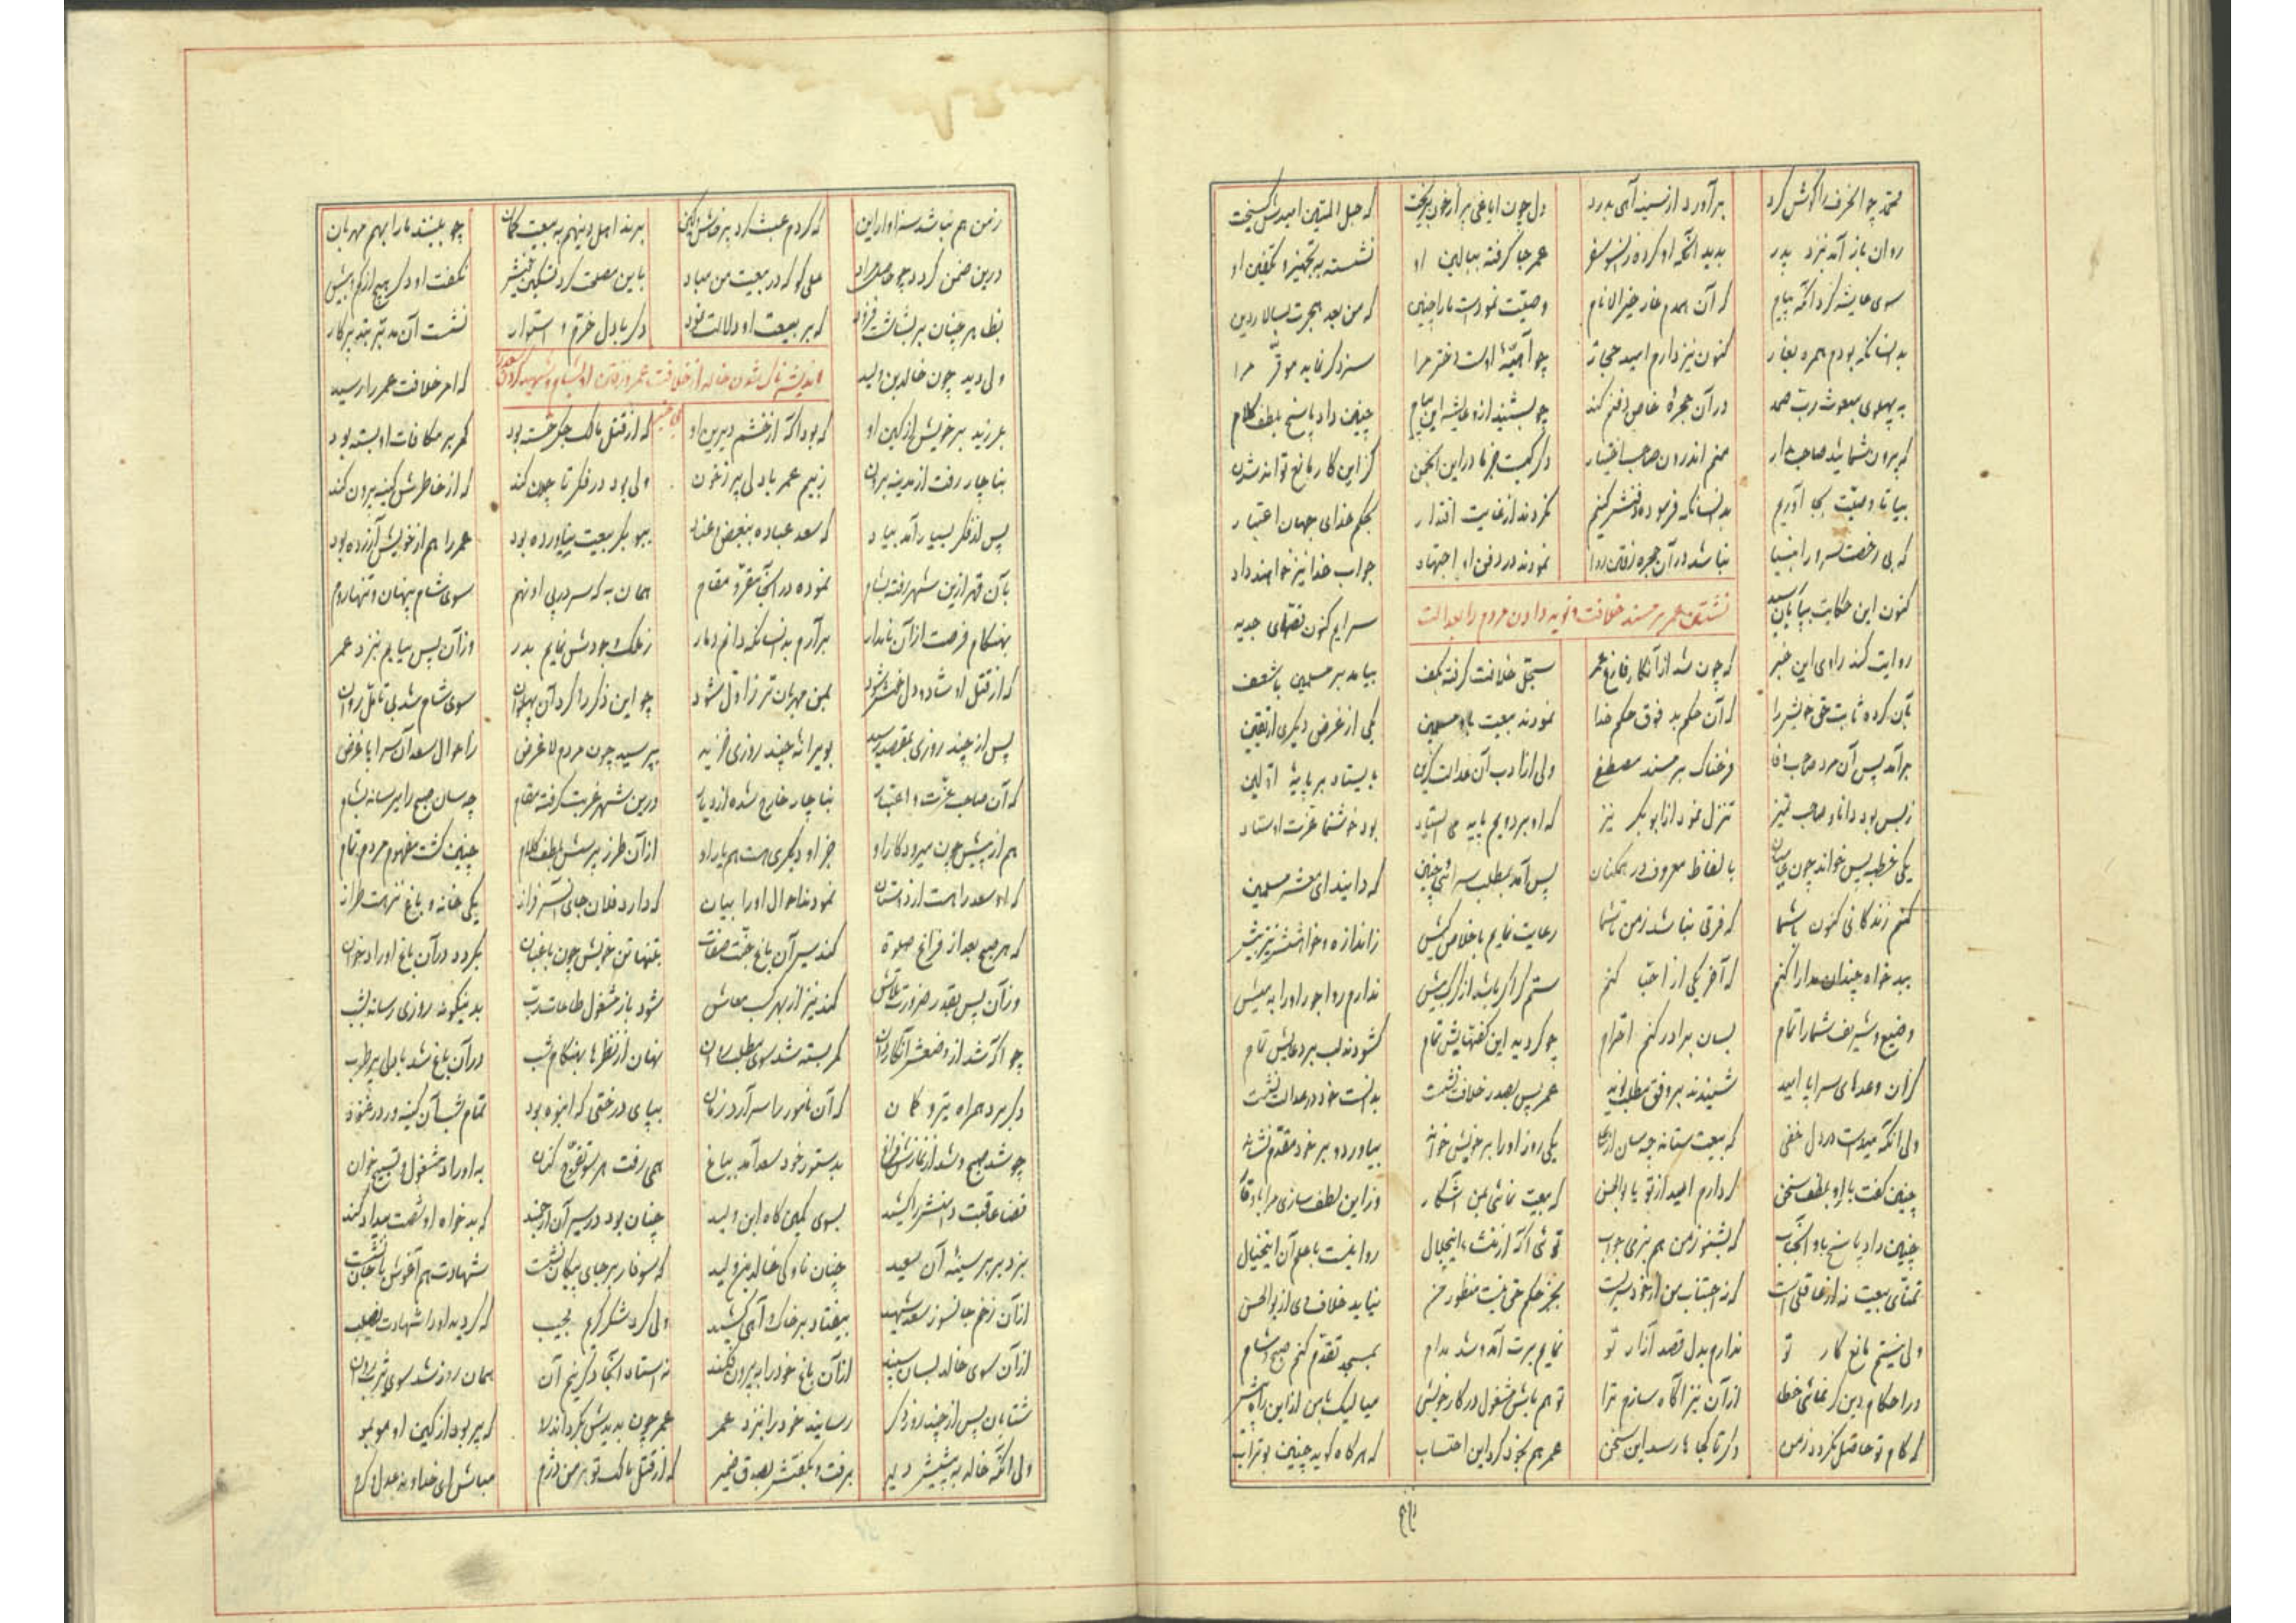 محمد چو الحرف را گوش کرد برآورد از سینه آهی بدرد دل چون ایاغی پر از خون بریخت که حبل المتین امیدش گسیخت
روان باز آمد بنزد پدر بدید آنکه او کرده زانسو سفر عمر جا گرفته ببالین او نشسته به تجهیز و تکفین او
سوی عایشه کرد آنگه پیام که آن همدم غار خیر الانام وصیّت نمودست ما را چنین که من بعد هجرت بسالار دین
بدانسانکه بودم همره بغار کنون نیز دارم امید جوار چو است دختر مرا سزد گر نماید موقّر مرا
به پهلوی مبعوث ربّ صمد در آن حجرهٔ خاص دفنم کند چو بشنید ازو عایشه این پیام چنین داد پاسخ بلطف کلام
که بیرون شمائید صاحب مدار منم اندرون صاحب اختیار دگر کیست جز ما در این انجمن کز این کار مانع تواند شدن
بیا تا وصیّت بجا آوریم بدانسانکه فرموده دفنش کنیم نکردند از غایت اقتدار بحکم خدای جهان اعتبار
که بی رخصت سرور انبیا نباشد در آن حجره رفتن روا نمودند در دفن او اجتهاد جواب خدا نیز خواهند داد
کنون این حکایت بپایان رسید سرایم کنون قصّهای جدید
نشستن عمر بر مسند خلافت و نوید دادن مردم را بعدالت
روایت کند راوی این خبر که چون شد از آنکار فارغ عمر سجلّ خلافت گرفته بکف بیامد بر مسلمین با شعف
بآن کرده ثابت حق خویش را که آن حکم بد فوق حکم خدا نمودند بیعت باو مسلمین یکی از غرض دیگری از یقین
برآمد پس آن مرد صاحب وفا فرحناک بر مسند مصطفی ولی از ادب آن عدالت گزین بایستاد بر پایهٔ اوّلین
ز بس بود دانا و صاحب تمیز تنزل نمود از ابوبکر نیز که او بر دویم پایه می ایستاد بود خوشنما عزّت اوستاد
یکی خطبه پس خواند چون بالفاظ معروف در همکنان پس آمد بمطلب سرائی چنین که دانید ای معشر مسلمین
کنم زندگانی کنون با شما که فرقی نباشد ز من تا شما رعایت نمایم باخلاص کیش ز اندازه و خواهشش نیز بیش
ببد خواه چندان مدارا کنم که آخر یکی از احبّا کنم ستم گر اگر باشد از کیش ندارم روا جور او را به میش
وضیع و شریف شما را تمام بسان برادر کنم احترام چو گردید این گفتهایش تمام گشودند لب بر دعایش تمام
از آن وعدهای سراپا امید شنیدند بر وفق مطلب نوید عمر پس بصدر خلافت نشست بدانست خود در عدالت نشست
ولی آنکه میداشت در دل خفی که بیعت ستاند چه سان از علی یکی روز او را بر خویش خواند بیاورد و بر خود مقدّم نشاند
چنین گفت با او بلطف سخن که دارم امید از تو یا بوالحسن که بیعت نمائی بمن آشکار وز این لطف سازی مرا با وقار
چنین داد پاسخ باو آنجناب که بشنو ز من هم بنرمی جواب توئی آگه از روا نیست با علم آن اینخیال
تمنّای بیعت نه از عاقلی است که اجتناب من از خود سریست بجز حکم حق نیست منظور من نیاید خلاف وی از بوالحسن
ولی نیستم مانع کار تو ندارم بدل قصد آزار تو نمایم برت آمد و شد مدام بمسجد تقدّم کنم صبح و شام
در احکام دین گر نمائی خطا از آن نیز آگاه سازم ترا تو هم باش مشغول در کار خویش میا لیک با من از این راه پیش
که کام تو حاصل نگردد ز من دگر تا کجا ها رسد این سخن عمر هم بخود کرد این احتساب که هر گاه گوید چنین بوتراب
ز من هم نباشد سزاوار این که کردم عبث گرد پرخاش و کین برند اهل دنیا هم به بیعت گمان چو بینند ما را بهم مهربان
درین ضمن گردد چو حاصل مراد علی گو که در بیعت من مباد باین مصلحت کرد تسکین خویش نگفت او دگر هیچ از کم و بیش
بظاهر چنان بر بشاشت فزود که بر بیعت او دلالت نمود دگر با دل خرّم و استوار نشست آن مدبّر بتدبیر کار
اندیشه ناک شدن خالد از خلافت عمر و رفتن او بشام و شهید کردن سعد
ولی دید چون خالد بن ولید که امر خلافت عمر را رسید
بلرزید بر خویش از کین او که بود آگه از خشم دیرین او که از قتل مالک جگر خسته بود کمر بر مکافات او بسته بود
بناچار رفت از مدینه برون ز بیم عمر با دلی پر ز خون ولی بود در فکر تا چون کند که از خاطرش کینه بیرون کند
پس از فکر بسیار آمد بیاد که سعد عباده ببغض و عناد ببوبکر بیعت نیاورده بود عمر را هم از خویش آزرده بود
بآن قهر ازین شهر رفته بشام نموده در آنجا مقرّ و مقام همان به که سر در پی او نهم سوی شام پنهان و تنها روم
بهنگام فرصت از آن نابکار برآرم بدانسانکه دانم دمار ز ملک وجودش نمایم بدر وز آن پس بیایم بنزد عمر
که از قتل او شاد و دل خوش شود بمن مهربان تر ز اوّل شود چو این فکر را کرد آن پهلوان سوی شام شد بی تامّل روان
پس از چند روزی بمقصد رسید بویرانه چند روزی خزید بپرسید چون مردم لا غرض ز احوال سعد آن سراپا غرض
که آن صاحب عزّت و اعتبار بناچار خارج شده از دیار درین شهر غربت گرفته مقام چه سان صبح را میرساند بشام
هم از پیش چون میرود کار او جز او دیگری هست هم یار او از آن طرز پرسش بلطف کلام چنین گشت مفهوم مردم تمام
که او سعد را هست از دوستان نمودند احوال او را بیان که دارد فلان جای آن سرفراز یکی خانه و باغ نزهت طراز
که هر صبح بعد از فراغ صلوة کند سیر آن باغ جنّت صفات بتنها تن خویش چون باغبان بگردد در آن باغ اوراد خوان
وز آن پس بقدر ضرورت تلاش کند نیز از بهر کسب معاش شود باز مشغول طاعات رب بدینگونه روزی رساند بشب
چو آگه شد از وضعش آنکاردان کمر بسته شد سوی مطلب روان نهان از نظرها بهنگام شب در آن باغ شد با دل پر طرب
دگر برد همراه تیر و کمان که آن نامور را سرآرد زمان بپای درختی که انبوه بود تمام شب آن کینه ور در غنود
چو شد صبح و شد از نمازش فراغ بدستور خود سعد آمد بباغ همی رفت هر سو تفرّج کنان به اوراد مشغول و تسبیح خوان
قضا عاقبت دامنش را کشید بسوی کمین گاه ابن ولید چنان بود در سیر آن ارجمند که بدخواه او شست بیداد کند
بزد بر بر سینهٔ آن سعید چنان ناوکی خالد بن ولید که سوفار بر جای پیکان نشست شهادت هم آغوش با جان نشست
از آن زخم جانسوز سعد شهید بیفتاد بر خاک و آهی کشید ولی کرد شکر کرم مجیب که گردید او را شهادت نصیب
از آن سوی خالد بسان سپند از آن باغ خود را به بیرون فکند نه استاد آنجا دگر یکزمان همان روز شد سوی یثرب روان
شتابان پس از چند روز دگر رسانید خود را بنزد عمر عمر چون بدیدش بگرداند رو که پر بود از کین او مو بمو
ولی آنکه خالد به پیشش دوید برفت و بگفتش بصدق ضمیر که از قتل مالک تو بر من دژم مباش ای خداوند عدل و کرم